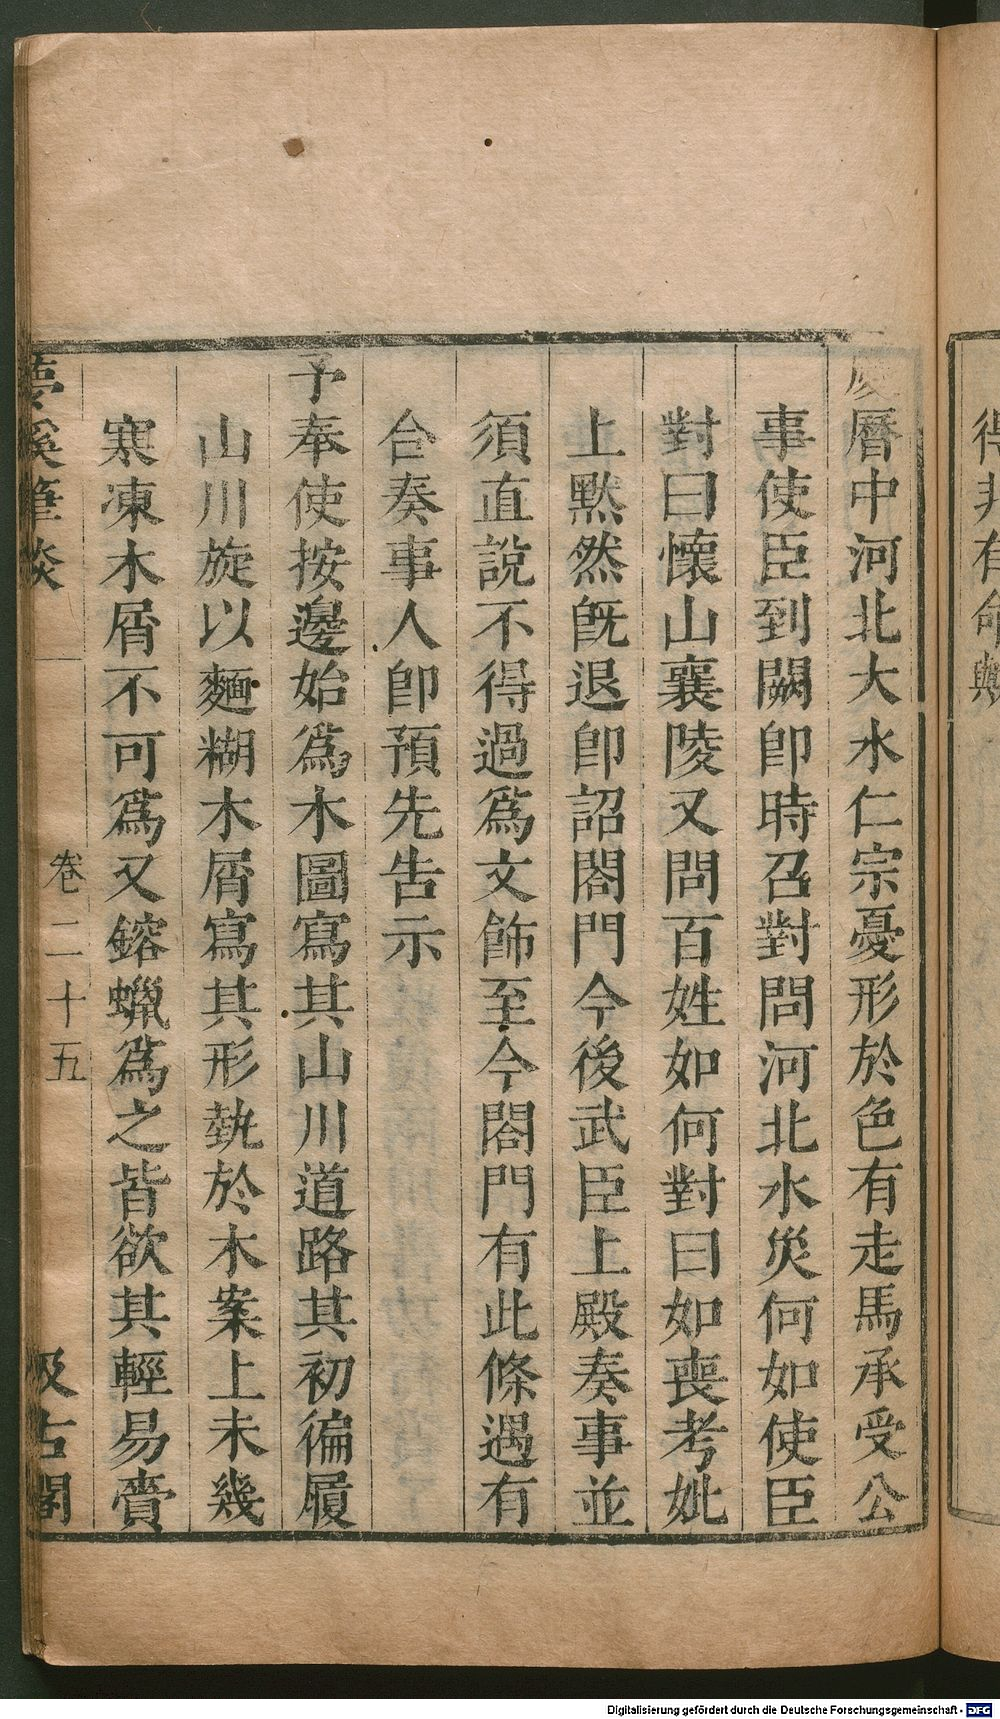 得非有命歟
慶曆中河北大水仁宗憂形於色有走馬承受公
事使臣到闕卽時召對問河北水災何如使臣
對曰懷山襄陵又問百姓如何對曰如喪考妣
上黙然旣退卽詔閤門今後武臣上殿奏事並
須直說不得過爲文飾至今閤門有此條遇有
合奏事人卽預先告示
予奉使按邊始爲木圖寫其山川道路其初徧履
山川旋以麵糊木屑寫其形埶於木案上未幾
寒凍木屑不可爲又鎔蠟爲之皆欲其輕易賫
夢溪筆談
卷二十五
汲古閣
Digitalisierung gefördert durch die Deutsche Forschungsgemeinschaft - DFG